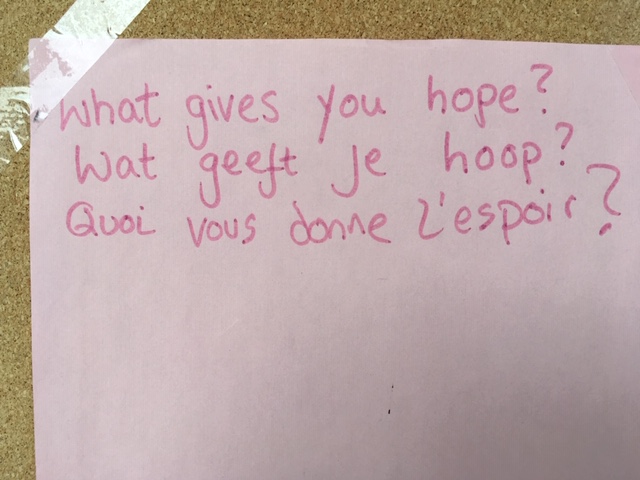 What gives you hope?
Wat geeft je hoop?
Quoi vous donne l'espoir?